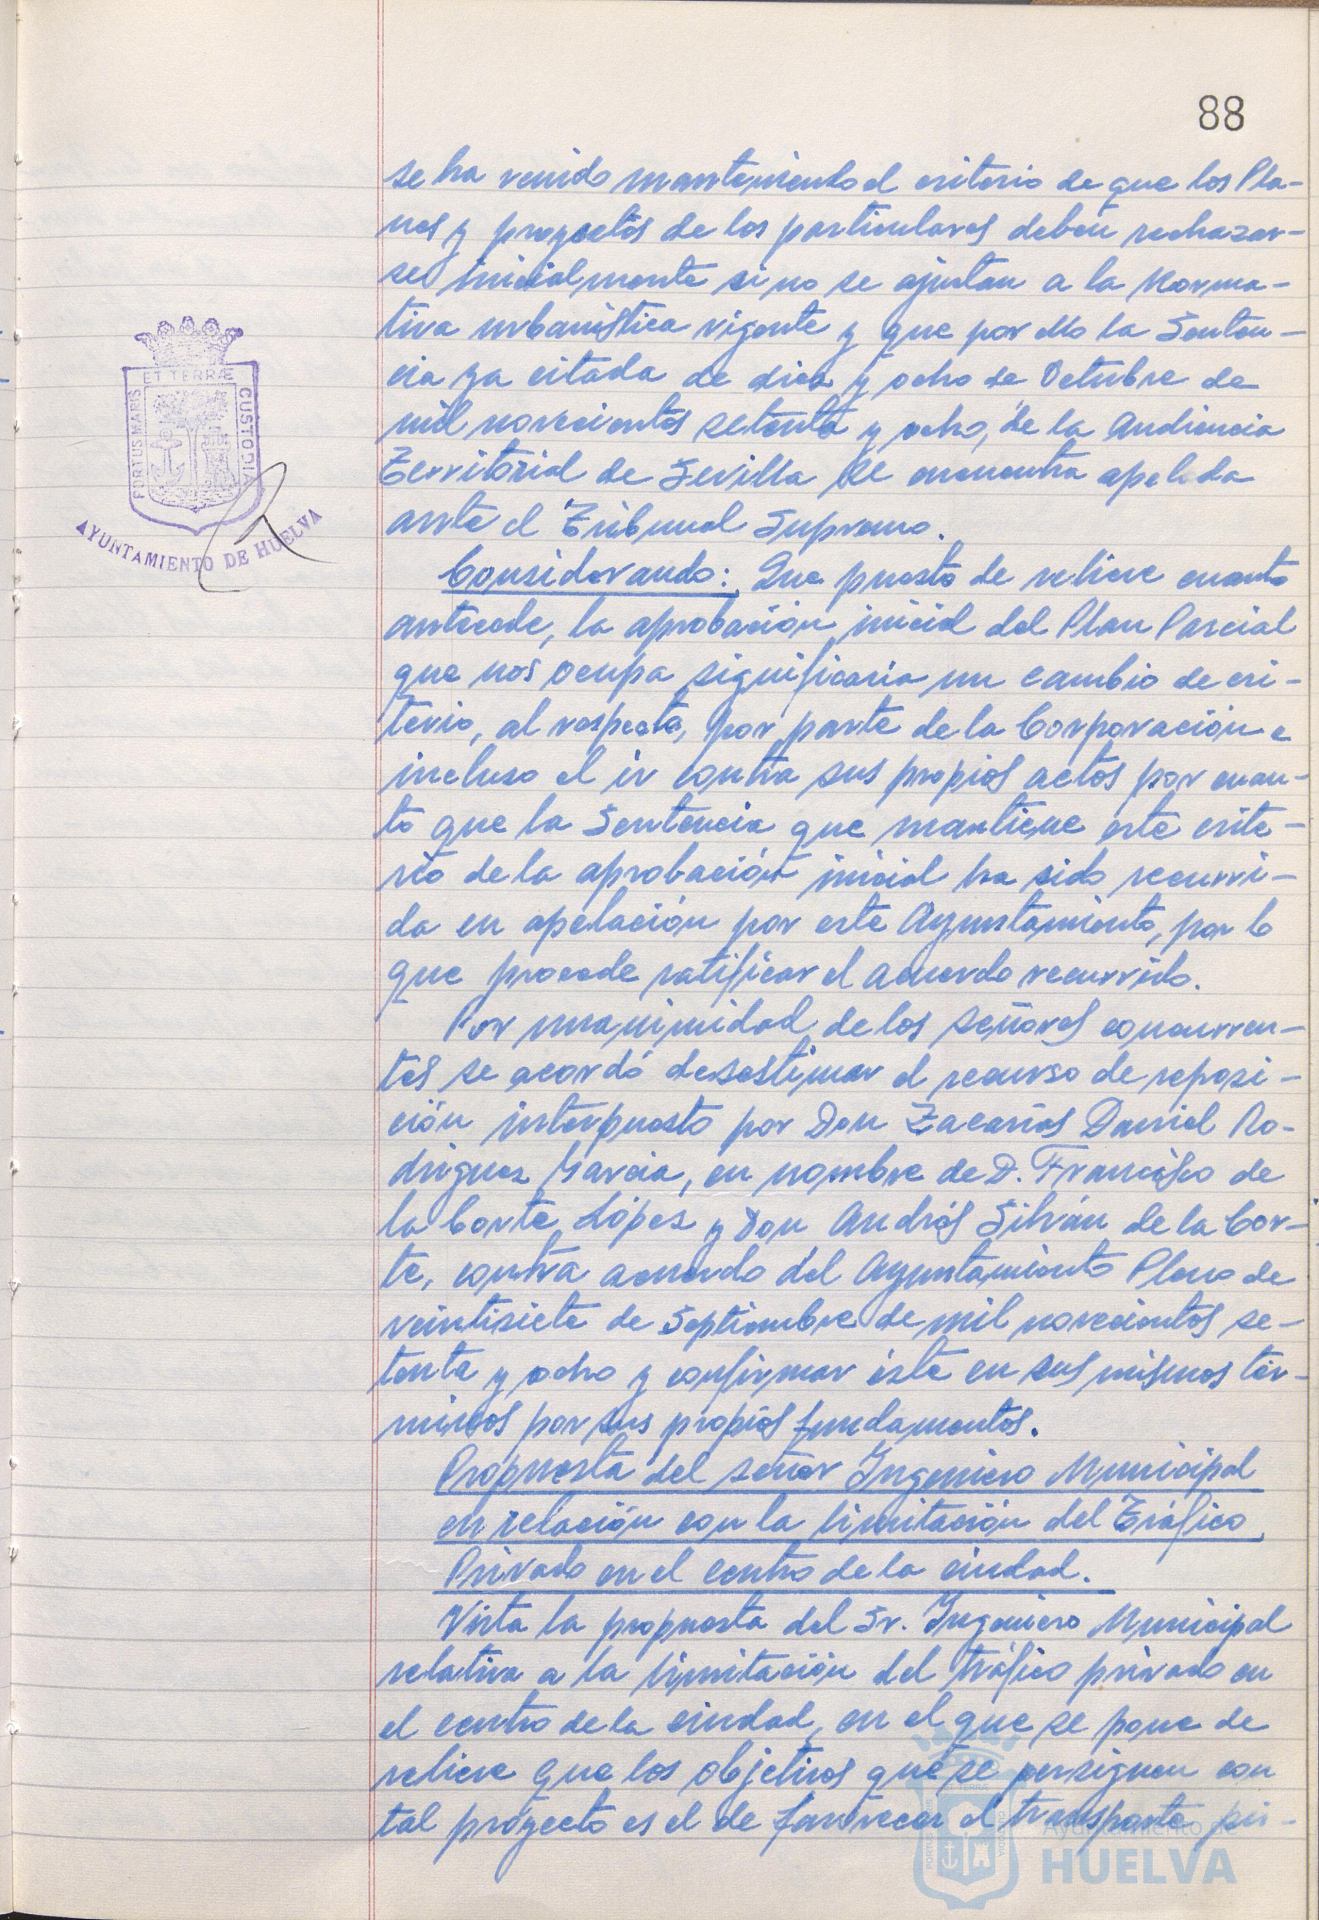 88
se ha venido manteniendo el criterio de que los Pla-
nes y proyectos de los particulares deben rechazar-
se inicialmente si no se ajustan a la Norma-
tiva urbanística vigente y que por ello la Senten-
cia ya citada de diez y ocho de Octubre de
mil novecientos setenta y ocho, de la Audiencia
Territorial de Sevilla se encuentra apelada
ante el Tribunal Supremo.
Considerando: Que puesto de relieve cuanto
antecede, la aprobación inicial del Plan Parcial
que nos ocupa significaría un cambio de cri-
terio, al respecto, por parte de la Corporación e
incluso el ir contra sus propios actos por cuan-
to que la Sentencia que mantiene este crite-
rio de la aprobación inicial ha sido recurri-
da en apelación por este Ayuntamiento, por lo
que procede ratificar el acuerdo recurrido.
Por unanimidad de los señores concurren-
tes se acordó desestimar el recurso de reposi-
ción interpuesto por Don Zacarías Daniel Ro-
driguez Garcia, en nombre de D. Francisco de
la Corte López y Don Andrés Silván de la Cor-
te, contra acuerdo del Ayuntamiento Pleno de
veintisiete de Septiembre de mil novecientos se-
tenta y ocho y confirmar éste en sus mismos tér-
minos por sus propios fundamentos.
Propuesta del señor Ingeniero Municipal
en relación con la limitación del Tráfico
Privado en el centro de la ciudad.
Vista la propuesta del Sr. Ingeniero Municipal
relativa a la limitación del tráfico privado en
el centro de la ciudad, en el que se pone de
relieve que los objetivos que se persiguen con
tal proyecto es el de favorecer el transporte pú-
PORTUS MARIS ET TERRÆ CUSTODIA
AYUNTAMIENTO DE HUELVA
Ayuntamiento de
HUELVA